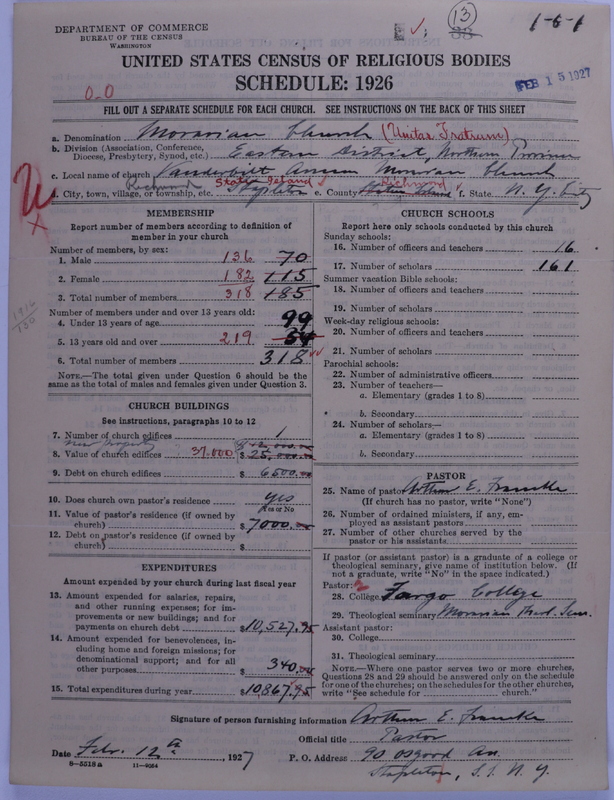 DEPARTMENT OF COMMERCE
BUREAU OF THE CENSUS
WASHINGTON
13
38
1-6-1
UNITED STATES CENSUS OF RELIGIOUS BODIES
SCHEDULE: 1926
FEB 15 1927
0-0
FILL OUT A SEPARATE SCHEDULE FOR EACH CHURCH. SEE INSTRUCTIONS ON THE BACK OF THIS SHEET
a. Denomination Moravian Church (Unitas Fratrum)
b. Division (Association, Conference, Diocese, Presbytery, Synod, etc.) Eastern District, Northern Province
c. Local name of church Vanderbilt Avenue Moravian Church
Richmond Staten Island Richmond
d. City, town, village, or township, etc. Stapleton e. County f. State N. Y. City
MEMBERSHIP
Report number of members according to definition of member in your church
Number of members, by sex:
1. Male 136 70
2. Female 182 115
3. Total number of members 318 185
Number of members under and over 13 years old:
4. Under 13 years of age 99
5. 13 years old and over 219
6. Total number of members 318
NOTE.—The total given under Question 6 should be the same as the total of males and females given under Question 3.
1916
CHURCH BUILDINGS
See instructions, paragraphs 10 to 12
7. Number of church edifices 1
New Property
8. Value of church edifices 37.000 $ 25,000.00
9. Debt on church edifices $ 6500.00
10. Does church own pastor's residence yes
Yes or No
11. Value of pastor's residence (if owned by church) $ 7000.00
12. Debt on pastor's residence (if owned by church) $
EXPENDITURES
Amount expended by your church during last fiscal year
13. Amount expended for salaries, repairs, and other running expenses; for improvements or new buildings; and for payments on church debt $ 10,527.95
14. Amount expended for benevolences, including home and foreign missions; for denominational support; and for all other purposes $ 340.00
15. Total expenditures during year $ 10,867.95
CHURCH SCHOOLS
Report here only schools conducted by this church
Sunday schools:
16. Number of officers and teachers 16
17. Number of scholars 161
Summer vacation Bible schools:
18. Number of officers and teachers
19. Number of scholars
Week-day religious schools:
20. Number of officers and teachers
21. Number of scholars
Parochial schools:
22. Number of administrative officers
23. Number of teachers—
a. Elementary (grades 1 to 8)
b. Secondary
24. Number of scholars—
a. Elementary (grades 1 to 8)
b. Secondary
PASTOR
25. Name of pastor Arthur E. Francke
(If church has no pastor, write "None")
26. Number of ordained ministers, if any, employed as assistant pastors
27. Number of other churches served by the pastor or his assistants
If pastor (or assistant pastor) is a graduate of a college or theological seminary, give name of institution below. (If not a graduate, write "No" in the space indicated.)
Pastor: 2
28. College Fargo College
29. Theological seminary Moravian Theol. Sem.
Assistant pastor:
30. College
31. Theological seminary
NOTE.—Where one pastor serves two or more churches, Questions 28 and 29 should be answered only on the schedule for one of the churches; on the schedules for the other churches, write "See schedule for church."
Signature of person furnishing information Arthur E. Francke
Official title Pastor
Date Feb. 12th, 1927 P. O. Address 90 Osgood Av.
8—5518a 11—9054 Stapleton, S. I. N. Y.